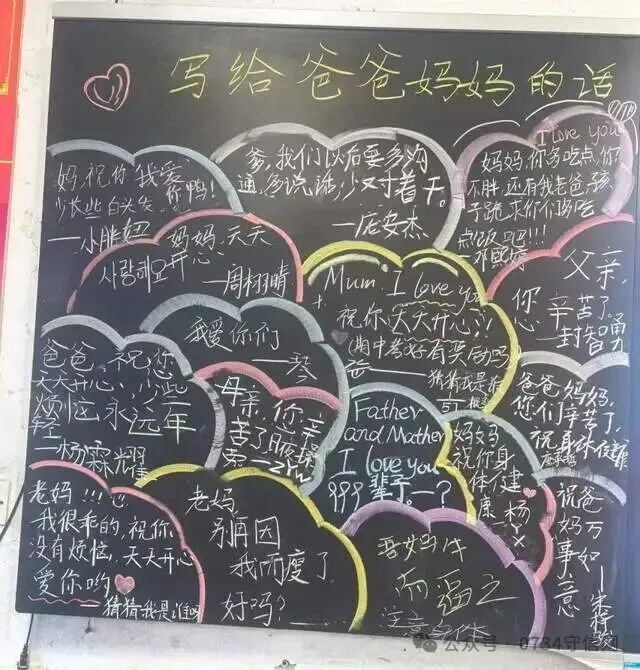 写给爸爸妈妈的话
妈,祝你我爱
你鸭!
少长些白头发
——小胖妞
爹,我们以后要多沟
通,多说话,少对着干。
——庞安杰
I love you
妈妈,你多吃点,你
不胖,还有我老爸,孩
子跪求你们多吃
点饭吧!!!
妈妈,天天
사랑해요 开心:
——周栩晴
Mum I love you
祝你天天开心!
(期中考好有奖劢吗)
猜猜我是
父亲,
您
辛苦了。
——封智勇
我爱你们
——琴
爸爸,祝您
天天开心,少些
烦恼,永远年
轻
——杨霖耀
母亲,你辛
苦了
Father
and Mother
I love you
999辈子。—?
妈妈
祝你身
体健
康
杨
YX
爸爸妈妈,
您们辛苦了,
祝身体健康
老妈!!!
我很乖的,祝你
没有烦恼,天天开心
爱你哟
——猜猜我是谁吗
老妈,
别再因
我而瘦了
好吗?
而强之
祝爸
妈万
事如
意
公众号·0734守信网